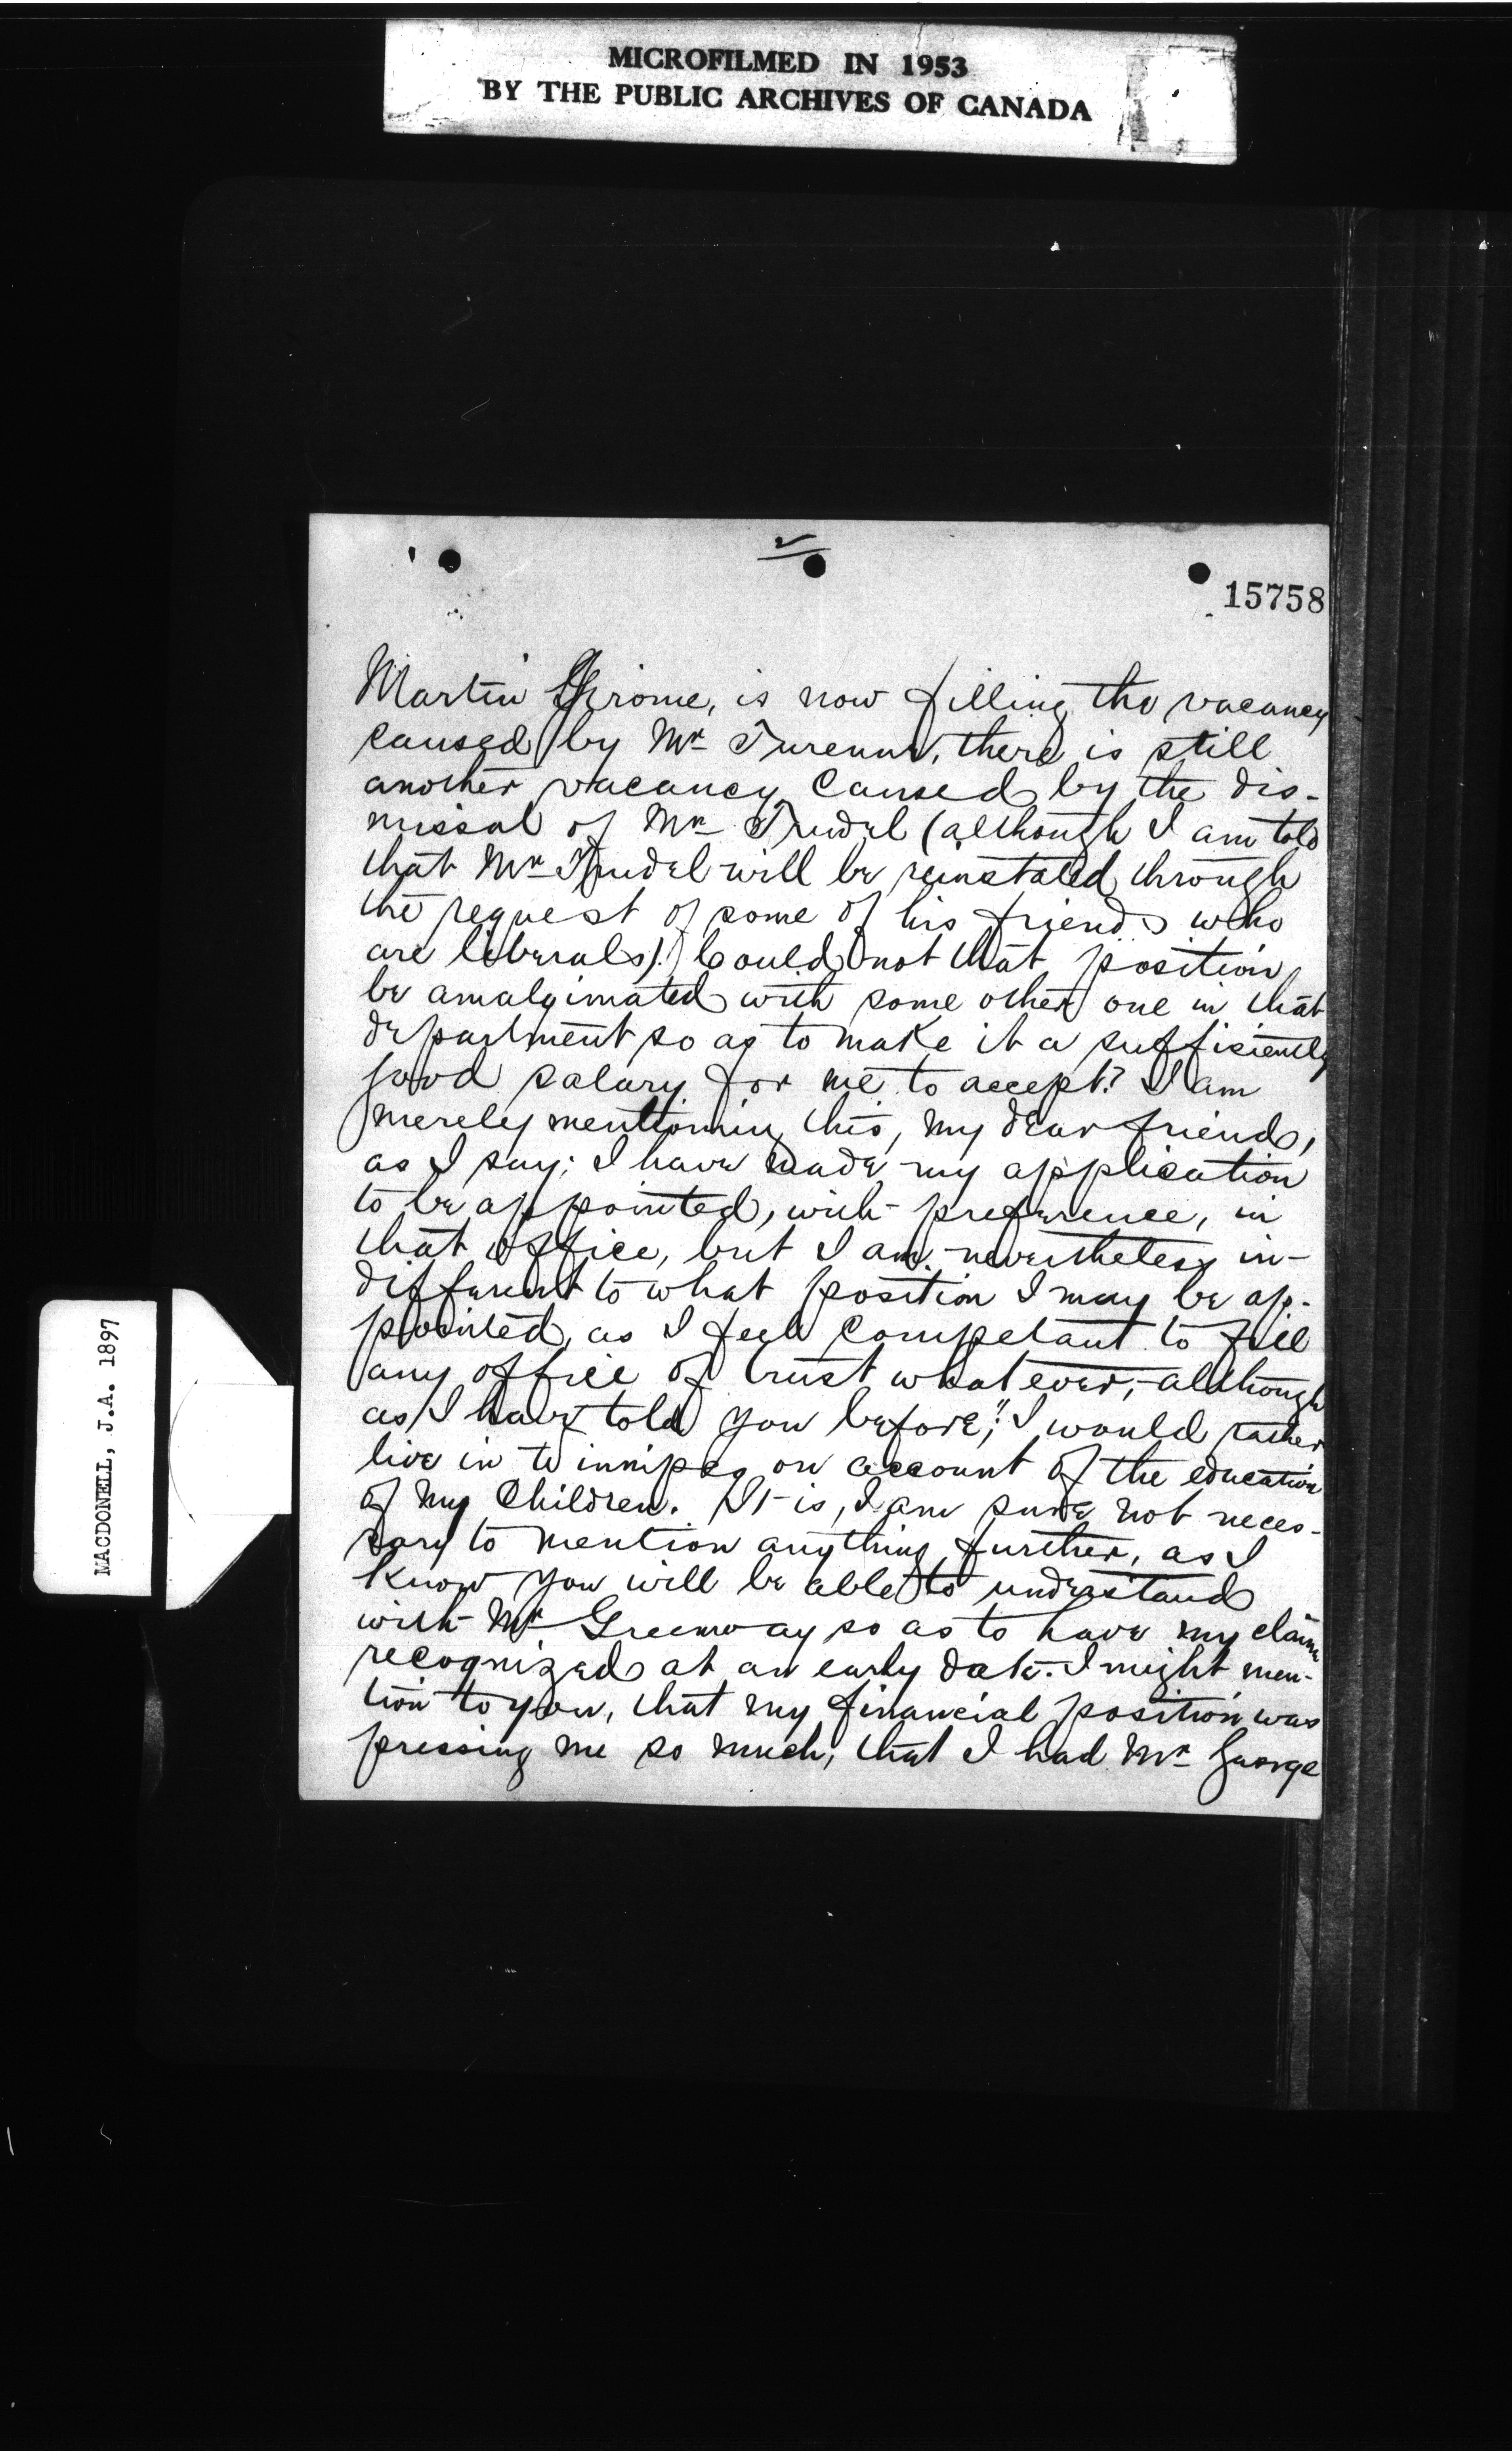 MICROFILMED IN 1953
BY THE PUBLIC ARCHIVES OF CANADA
2
15758
Martin Jérome, is now filling the vacancy
caused by Mr Turenne, there is still
another vacancy caused by the dis-
missal of Mr Trudel (although I am told
that Mr Trudel will be reinstated through
the request of some of his friends who
are liberals). Could not that position
be amalgimated with some other one in that
department so as to make it a suffisiently
good salary for me to accept? I am
merely mentionning this, my dear friend,
as I say; I have made my application
to be appointed, with preference, in
that office, but I am nevertheless in-
different to what position I may be ap-
pointed, as I feel competant to fill
any office of trust whatever, although
as I have told you before, I would rather
live in Winnipeg on account of the education
of my Children. It is, I am sure not neces-
sary to mention anything further, as I
know you will be able to understand
with Mr Greenway so as to have my claim
recognized at an early date. I might men-
tion to you, that my financial position was
pressing me so much, that I had Mr George
MACDONELL, J.A. 1897